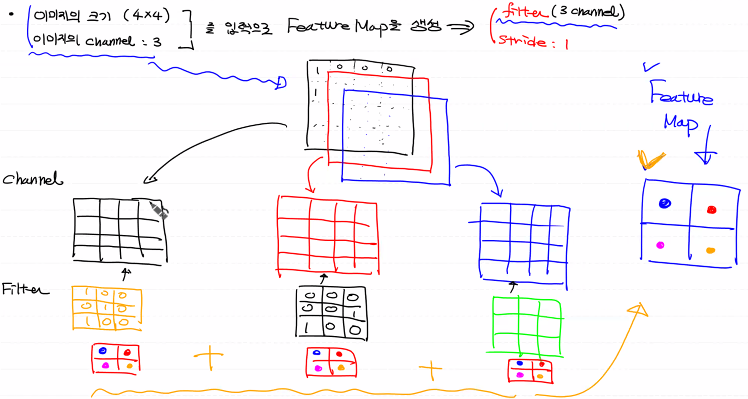 • 이미지의 크기 (4×4)
이미지의 channel : 3
을 입력으로 Feature Map을 생성 ⇒
filter (3 channel)
stride : 1
1 0 0 0
1
1
Feature
Map
channel
Filter
1 0 0
0 1 0
1 0 0
0 0 0
0 0 1
1 0 0
+
+